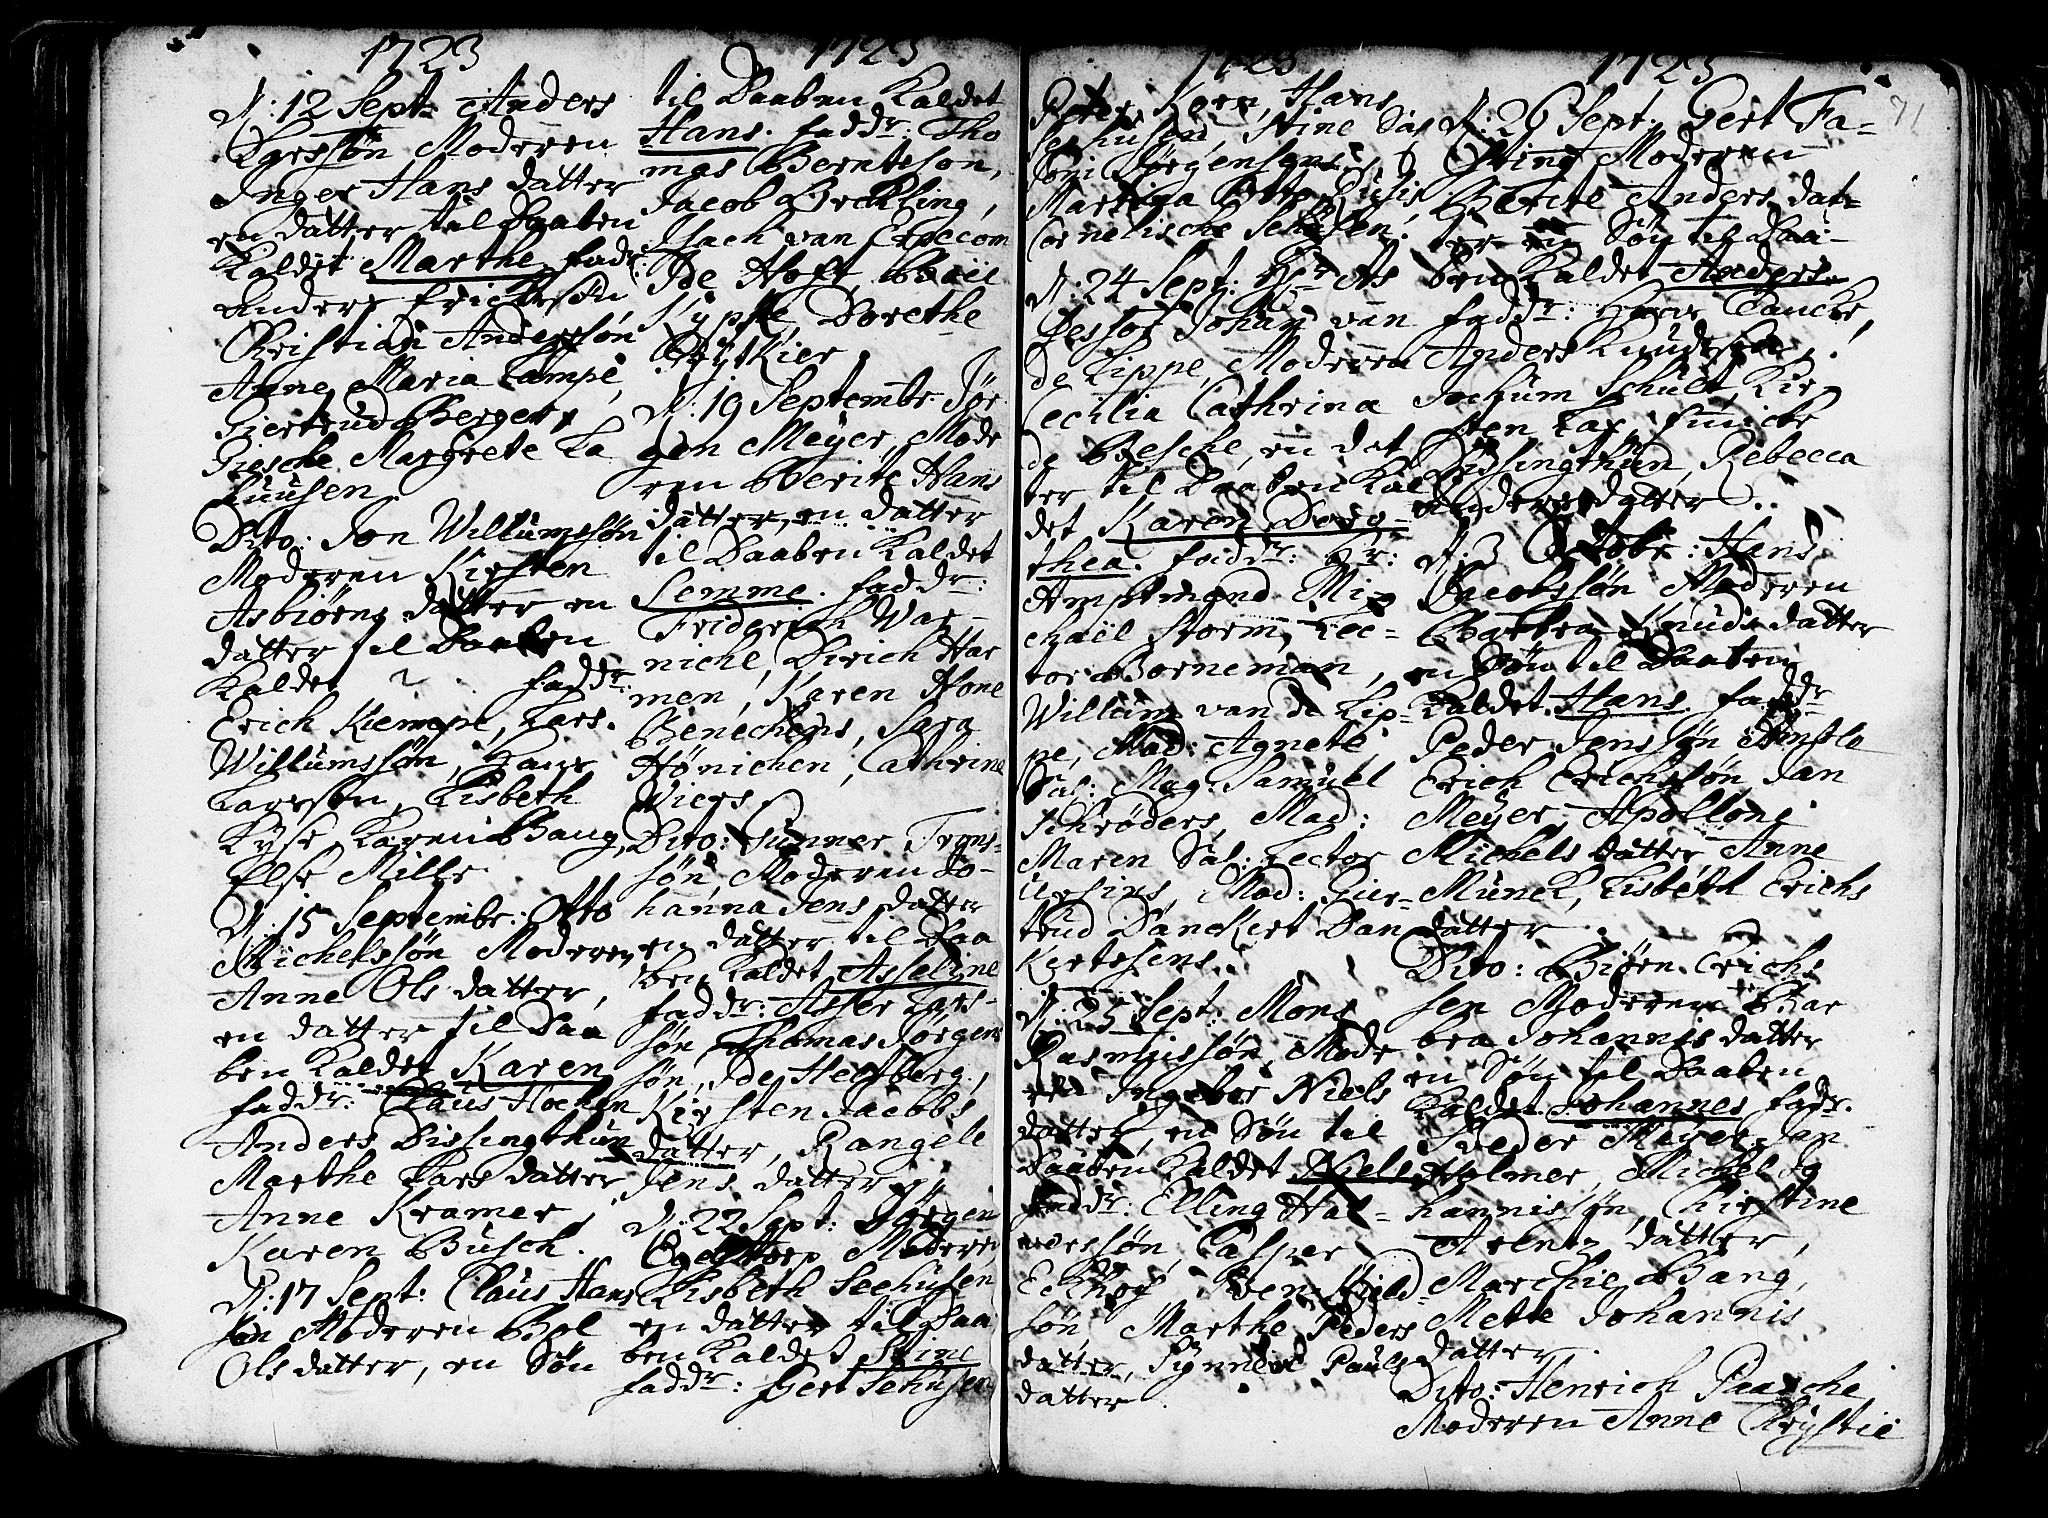 1723
D: 12 Sept: Anders
Larssøn Moderen
Inger Hans datter
en datter til Daaben
Kaldet Marthe fadr:
Anders Erichssøn
Christian Anderssøn
Anne Maria Lampe,
Giertrud Berger,
Giesche Margrete La
huusen
Dito: Jon Willumssøn
Moderen Kirsten
Asbiørns datter en
datter til Daaben
Kaldet ? faddr:
Erich Kiempe, Lars
Willumssøn, Hans
Larssen, Lisbeth
Kyse Karen Baug,
Else Mille
D: 15 Septembr: Otto
Michelssøn Moderen
Anne Ols datter,
en datter til Daa
ben Kaldet Karen
faddr: Claus Hocken
Anders Dissingthun
Marthe Lars datter
Anne Kramer,
Karen Busch.
D: 17 Sept: Claus Hans
søn Moderen Bol
Ols datter, en Søn
1723
til Daaben Kaldet
Hans. faddr: Tho
mas Berntsson,
Jacob Breckling,
Isach van Erpecom
Ide Hoft, Boel
Kypke, Dorethe
D: 19 Septembr Jør
gen Meyer, Mode
ren Berite Hans
datter, en datter
til Daaben Kaldet
Lemme. faddr:
Friderich War
nichl, Dirich Har
men, Karen Hone
Benechens, Sara
Hønichen, Cathrine
Wiers.
Dito: Gunner Trons
søn, Moderen Jo-
hanna Jens datter
en datter til Daa
ben Kaldet Asseline
faddr: Asser Lars-
søn, Thomas Jørgens
søn, Ide Heltberg,
Kirsten Jacobs
datter, Rangele
Jens datter,
D: 22 Sept: Jørgen
Egelstorp Moderen
Lisbeth Seehusen
en datter til Daa
ben Kaldet Stine
faddr: Gert Sehusen
1723
Peter Korn, Hans
Sehusen, Stine Sas
Joni Jørgensens
Martha
Cornelische Schulten.
D: 24 Sept: Hr As
sessor Johan van
de Lippe, Moderen
Cecilia Cathrina
de Besche, en dat
ter til Daaben Kal
det Karen Doro
thea. faddr: Hr:
Amptmand Mi-
chaël Storm, Lec-
tor Borneman,
Willum van de Lip-
pe, Mad: Agnete
Sal: Mag: Samuel
Schrøders, Mad:
Maren Sal: Lector
Ursins, Mad: Gier-
trud Danckert Dan
Kertsens.
D: 25 Sept: Mons
Rasmussøn, Mode
ren Ingebor Niels
datter, en Søn til
Daaben Kaldet Niels
faddr: Elling Hal-
vorssøn, Casper
Eckhof, Iver
søn, Marthe Peders
datter, Synneve Pauls
datter
1723
71
D: 26 Sept. Gert Fa-
sting Moderen
Berite Anders dat-
ter en Søn til Daa-
ben Kaldet Anders.
faddr: Hans Paucke,
Anders Knudssøn,
Jochum Schult, Kir
sten Lax, Funicke
Dissingthun, Rebecca
Anders datter.
D: 3 Octobr: Hans
Jacobssøn Moderen
Barbra Knuds datter
en Søn til Daaben
Kaldet Hans. faddr
Peder Jenssøn
Erich Erichssøn Jan
Meyer, Apollone
Michels datter Anne
Munck, Lisbeth Erichs
datter.
Dito: Biørn Erichs
sen Moderen Bar
bra Johannis datter
en Søn til Daaben
Kaldet Johannes fadr.
Peder Meyer, Jan
Holmer, Michel Jo
hannissøn, Kirstine
Arentz datter,
Marchie Bang,
Mette Johannis
datter.
Dito: Henrich Paasche
Moderen Anne Chrystie